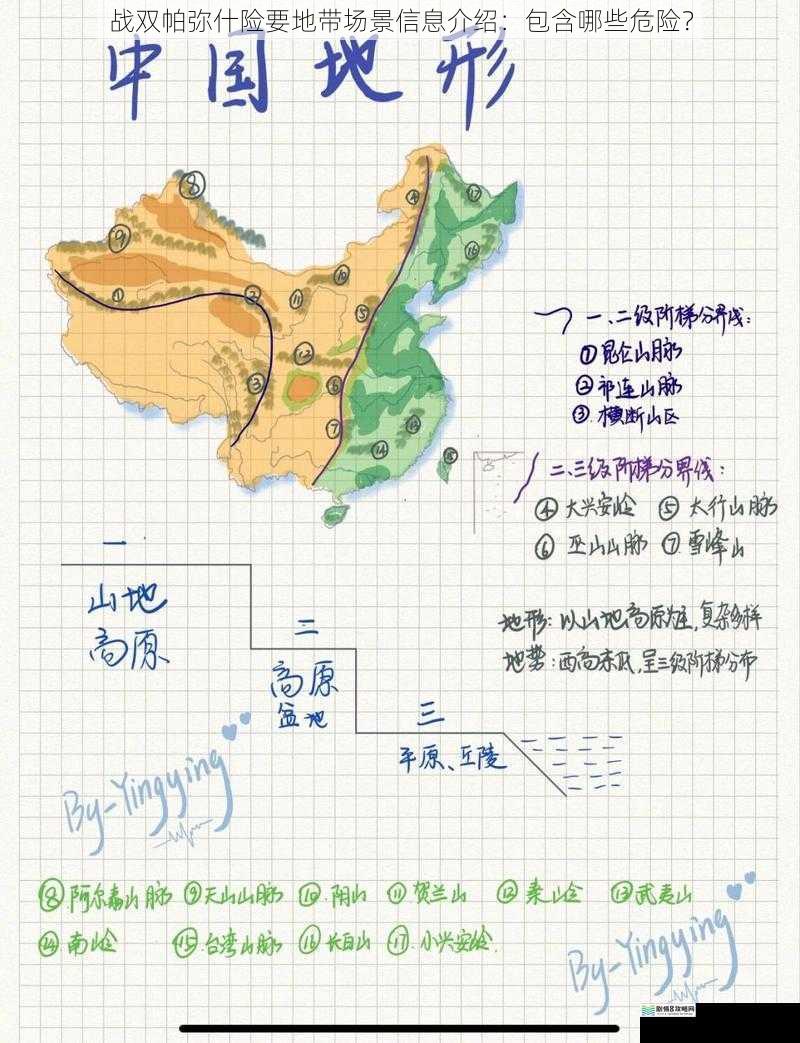 战双帕弥什险要地带场景信息介绍：包含哪些危险？
中国地形
⑧
⑨
④
⑰
⑯
①
②
⑪
⑩
⑤
⑫
③
⑥
⑦
⑭
⑬
⑮
一、二级阶梯分界线：
①昆仑山脉
②祁连山脉
③.横断山区
二、三级阶梯分界线：
④大兴安岭 ⑤太行山脉
⑥巫山山脉 ⑦雪峰山
一
山地
高原
二
高原
盆地
三
平原、丘陵
地形：以山地高原为主，复杂多样
地势：西高东低，呈三级阶梯分布
By-Yingying
⑧.阿尔泰山脉 ⑨天山山脉 ⑩.阴山 ⑪贺兰山 ⑫秦岭 ⑬武夷山
⑭南岭 ⑮台湾山脉 ⑯长白山 ⑰.小兴安岭.
By-Yingying
剧情8攻略网